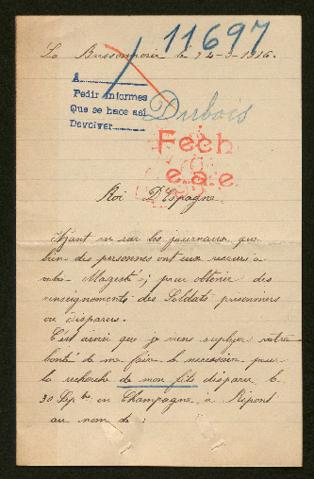 11697
La Buissonnerie le 24-3-1916.
A
Pedir informes
Que se hace así
Devolver
Dubois
Fech
e.a.e.
Roi D'Espagne
Ayant vu sur les journaux que
bien des personnes ont eux recours a
votre Magesté ; pour obtenir des
renseignements des Soldats prisonniers
ou disparus.
C'est ainsi que je viens suplier votre
bonté de me faire le nécessaire pour
la recherche de mon fils disparu le
30 Sepbre en Champagne a Ripont
au nom de :